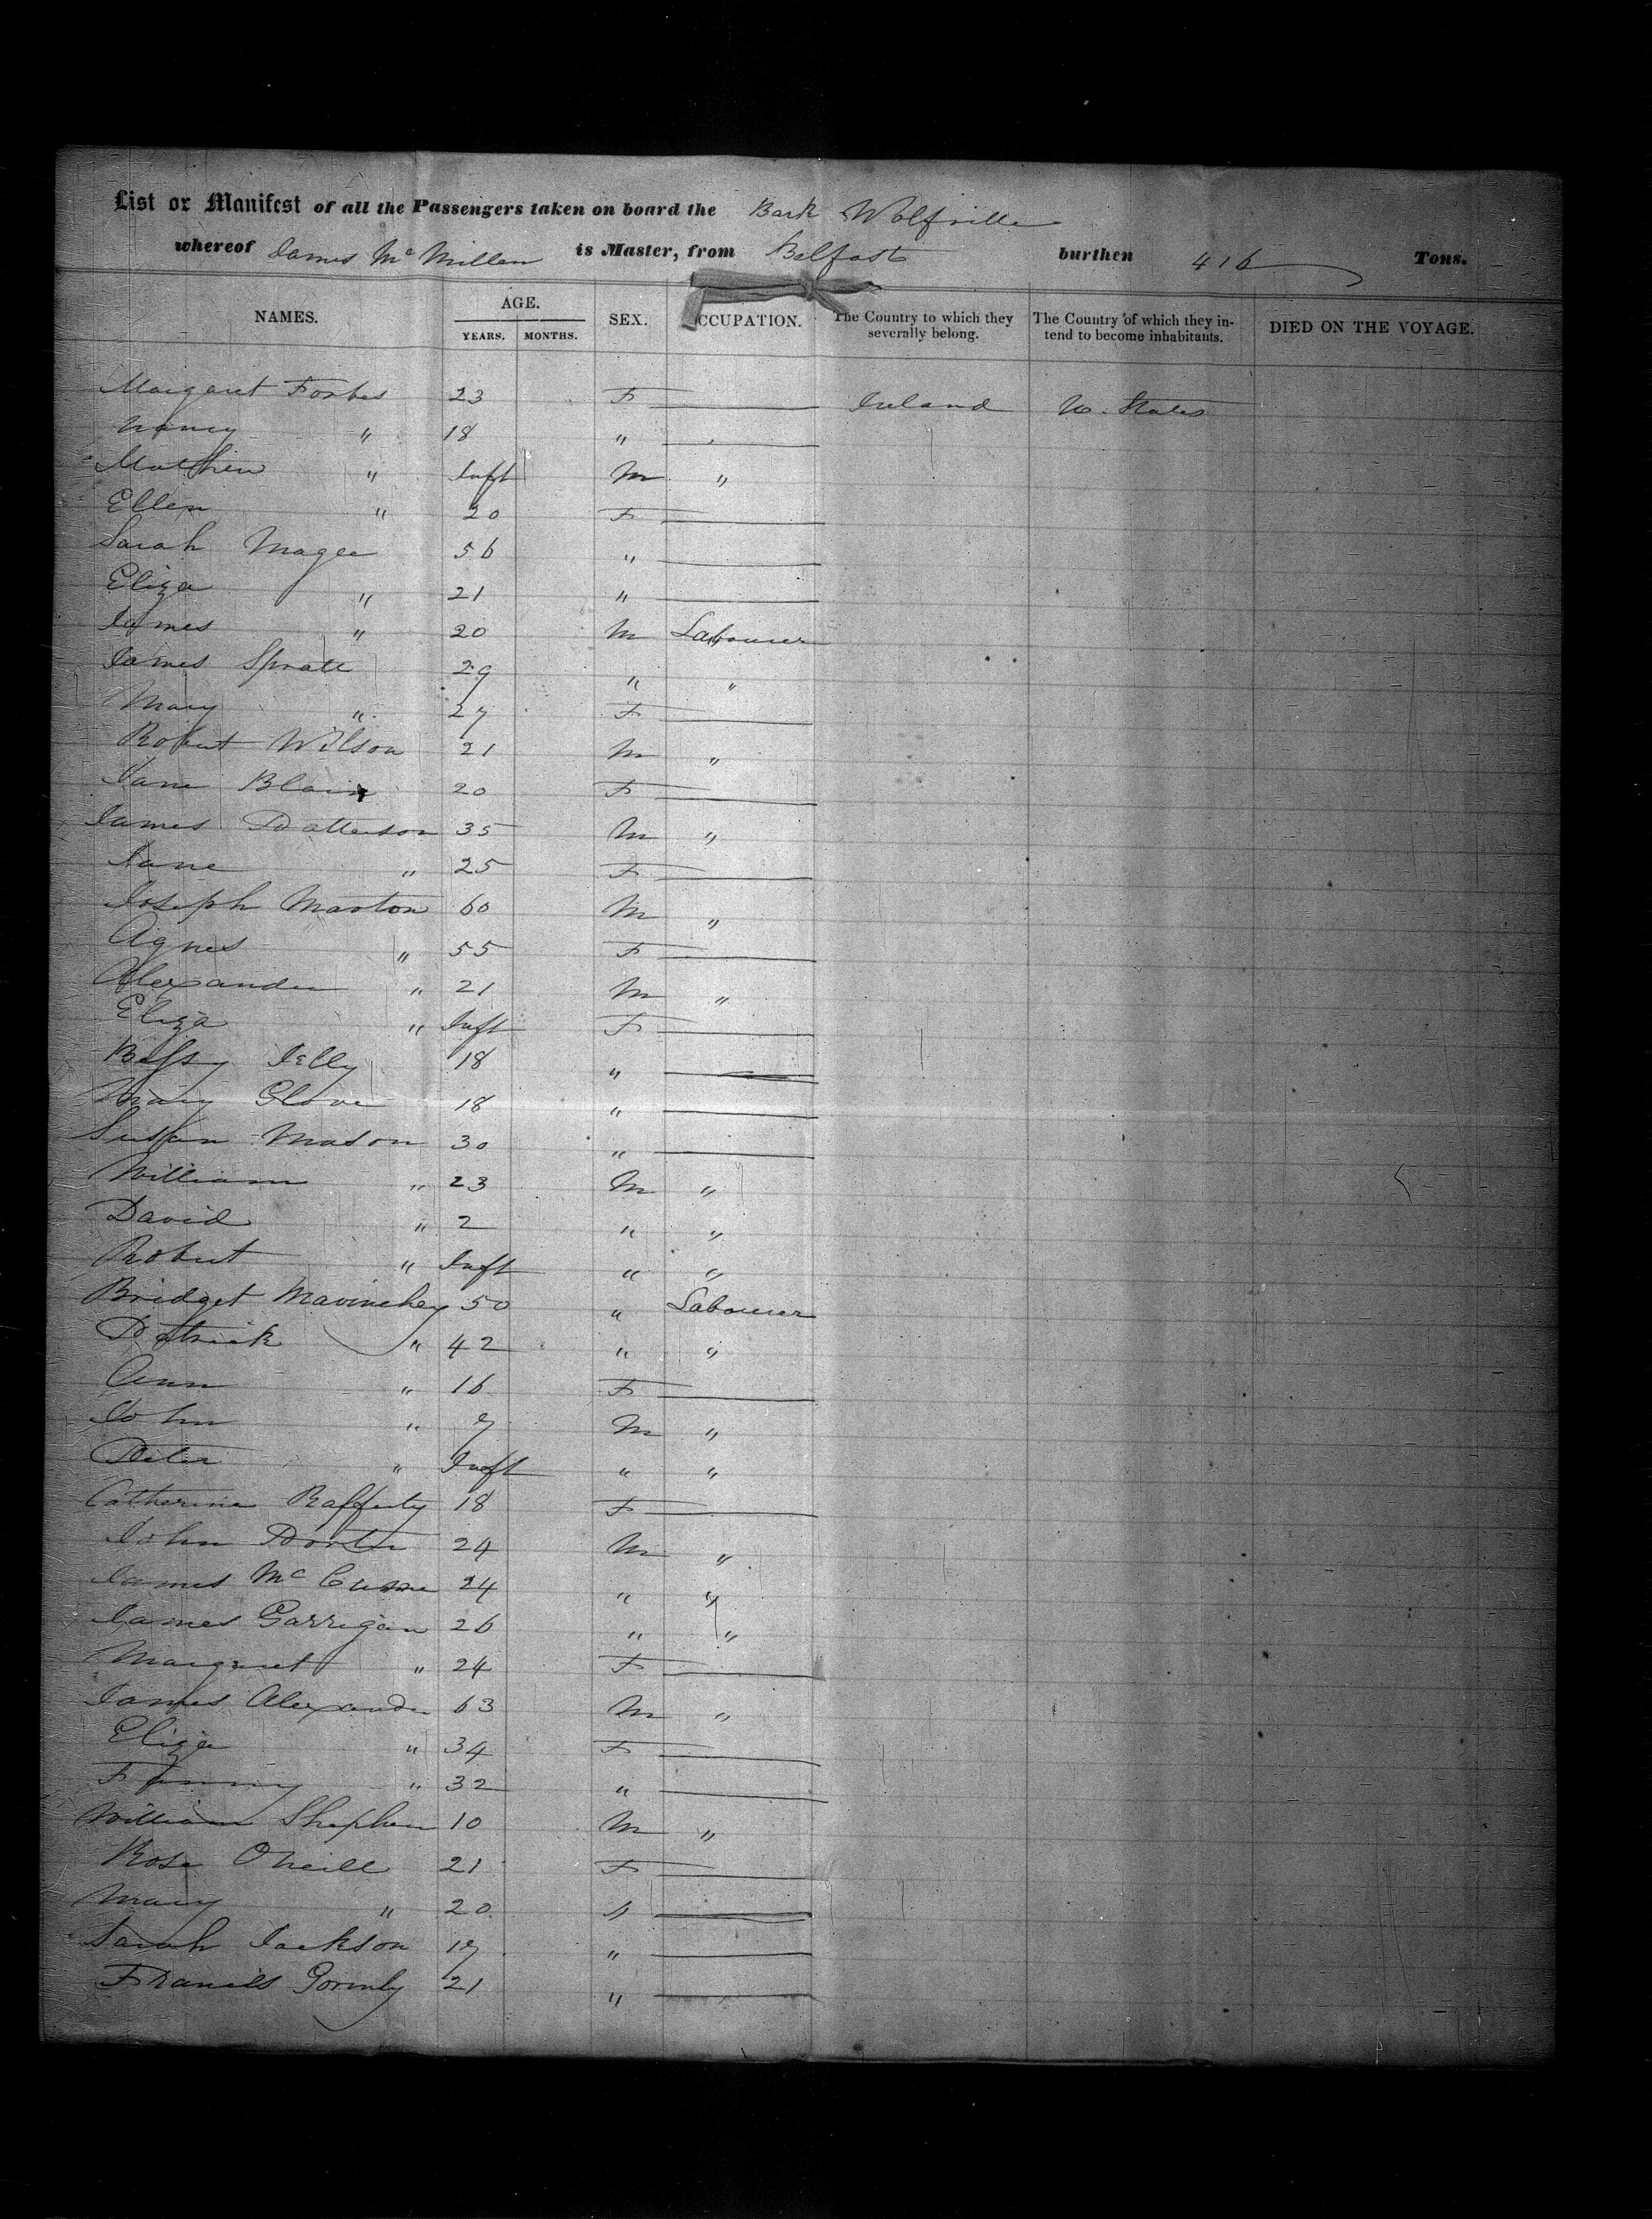 List or Manifest of all the Passengers taken on board the Bark Wolfville
whereof James McMillen is Master, from Belfast burthen 416 Tons.
NAMES. AGE. YEARS. MONTHS. SEX. OCCUPATION. The Country to which they severally belong. The Country of which they intend to become inhabitants. DIED ON THE VOYAGE.
Margaret Forbes 23 F — Ireland U. States
Nancy " 18 " —
Mathew " Inft M "
Ellen " 20 F —
Sarah Magee 56 " —
Eliza " 21 " —
James " 20 M Labourer
James Spratt 29 " "
Mary " 27 F —
Robert Wilson 21 M "
Jane Blair 20 F —
James Patterson 35 M "
Jane " 25 F —
Joseph Marton 60 M "
Agnes " 55 F —
Alexander " 21 M "
Eliza " Inft F —
Bessy Jelly 18 " —
Mary Glover 18 " —
Susan Mason 30 " —
William " 23 M "
David " 2 " "
Robert " Inft " "
Bridget 50 " Labourer
Patrick " 42 " "
Ann " 16 F —
John " 7 M "
Peter " Inft " "
Catherine Rafferty 18 F —
John Porter 24 M "
James Mc 24 " "
James Garrigan 26 " "
Margaret " 24 F —
James Alexander 63 M "
Eliza " 34 F —
Fanny " 32 " —
William Shephen 10 M "
Rose O'Neill 21 F —
Mary " 20 " —
Sarah Jackson 17 " —
Francis Gormly 21 " —